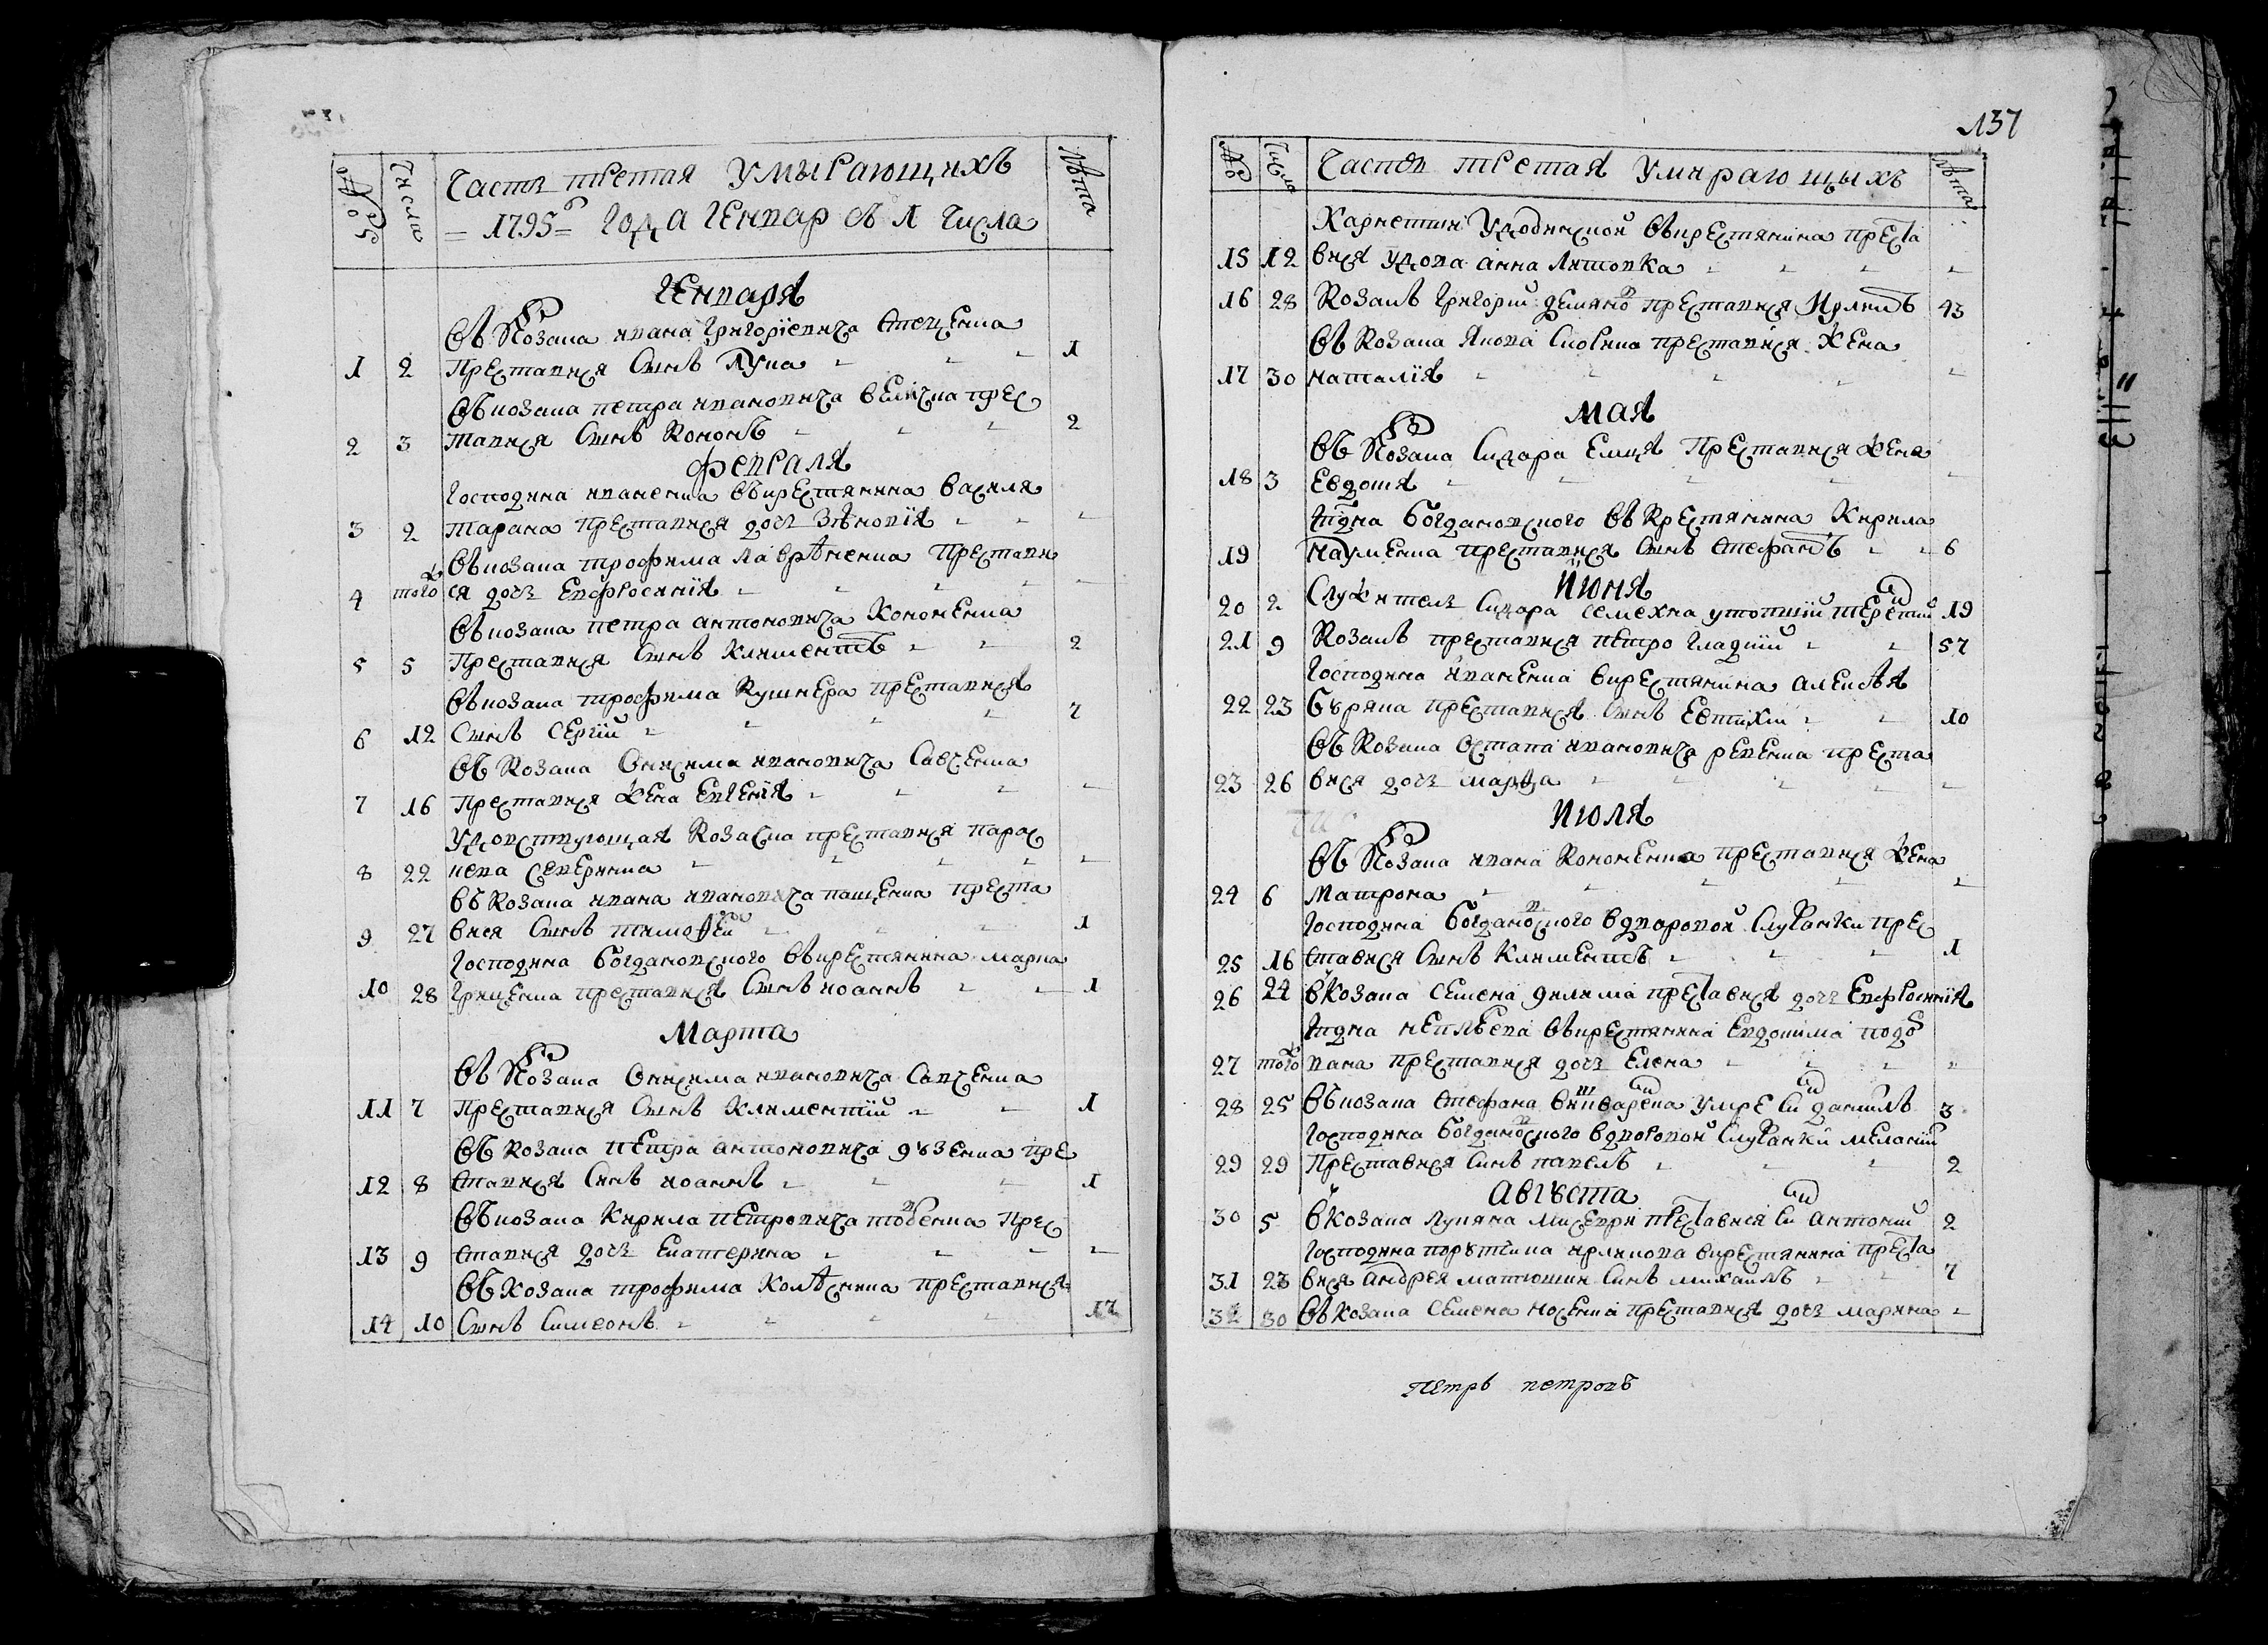 № Числа Часть третая Умырающихъ Лѣта
1795го Года Генвар съ 1 Числа
Генваря
въ Козака ивана Григоріевича Стеценка
1 2 Преставися Сынъ Лука 1
въ козака петра ивановича великиа прес
2 3 тавися Сынъ Кононъ 2
февраля
Господина иваненка въ крестянина василя
3 2 тарана преставися дочь Зѣновія
въ козака трофима лаврѣненка Престави
4 того ж ся дочь Евфросинія
въ козака петра антоновича Кононенка
5 5 Преставися Сынъ Климентъ 2
въ козака трофима Кушнера преставися
6 12 Сынъ Сергій 7
въ Козака Онисима ивановича Савченка
7 16 Преставися жена Евгенія
Удовствующая Козачка преставися парас
8 22 кева северинка
въ Козака ивана ивановича пащенка преста
9 27 вися Сынъ тимофей 1
Господина Богдановского въ крестянина марка
10 28 Гриценка преставися Сынъ иоаннъ 1
Марта
въ Козака Онисима ивановича Савченка
11 7 Преставися Сынъ Климентій 1
въ Козака петра антоновича дѣзенка пре
12 8 ставися Синъ иоаннъ 1
въ козака Кирила петровича товбенка Прес
13 9 ставися дочь Екатерина
въ Козака трофима Колѣсника преставися
14 10 Сынъ Симеонъ 12
137
№ Числа Часть третая Умирающыхъ Лѣта
Карнетши Удовической въ крестянина преста
15 12 вися удова анна Литовка
16 28 Козакъ Григорій демяно преставися 43
въ Козака Якова преставися Жена
17 30 наталія
Мая
въ Козака Сидора Емця Преставися жена
18 3 Евдокія
Гпдна Богдановского въ Крестянина Кирила
19 Науменка преставися Сынъ Стефанъ 6
Июня
20 2 Служитель Сидора семехна утопшій терентій 19
21 9 Козакъ преставися петро гладкій 57
Господина иваненка в крестянина алексѣя
22 23 Бѣряка преставися Сынъ Евтихій 10
въ Козака Остапа ивановича ревенка преста
23 26 вися дочь марфа
Июля
въ Козака ивана Кононенка преставися жена
24 6 Матрона
Господина Богдановского в дворовой Служанки прес
25 16 ставися Сынъ Климентъ 1
26 24 в Козака семена дилима преставися дочь Евфросинія
Гпдна неплѣева въ крестянина Евдокима подо
27 того ж вана преставися дочь Елена
28 25 въ козака Стефана умре Синъ даниилъ 3
Господина Богдановского в дворовой Служанки меланій
29 29 Преставися Синъ павелъ 2
Августа
30 5 в Козака Лукяна мисеври преставися Синъ антоній 2
Господина порѣтчика ирликова в крестянина преста
31 23 вися андрея матюшин Синъ михаилъ 7
32 30 въ козака семена носенка преставися дочь марина
петръ петровъ